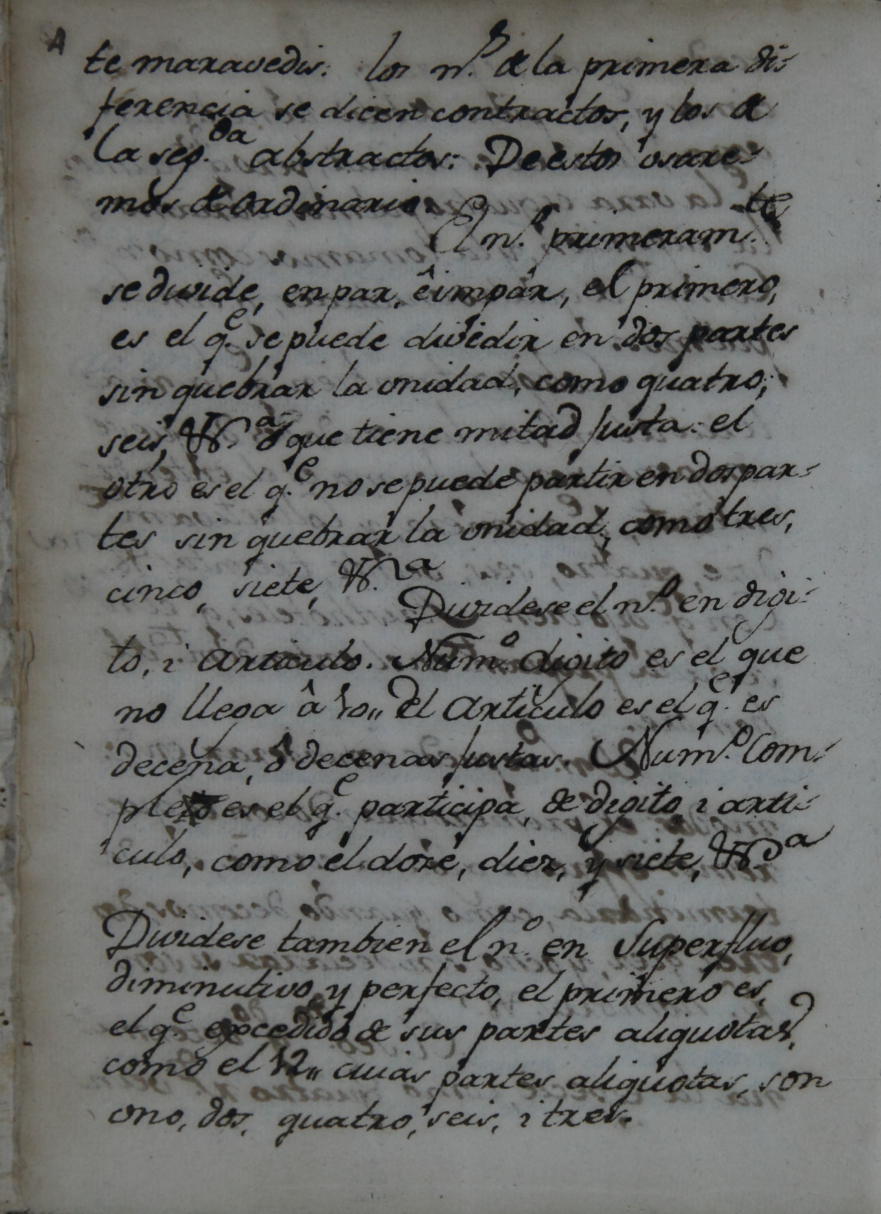 te maravedis. los n.ᵒˢ de la primera di-
ferencia se dicen contractos, y los de
la seg.ᵈᵃ abstractos: De estos usare-
mos de ordinario.
El n.º primeram.ᵗᵉ
se divide, en par, ê impár, el primero,
es el q.ᵉ se puede dividir en dos partes
sin quebrar la unidad, como quatro,
seis, &.ᵃ ô que tiene mitad justa: el
otro es el q.ᵉ no se puede partir en dos par-
tes sin quebrar la unidad, como tres,
cinco, siete, &.ᵃ
Dividese el n.º en digi-
to, i articulo. Num.º digito es el que
no llega â 10,, el Articulo es el q.ᵉ es
decena, ô decenas justas. Num.º Com-
plejo es el q.ᵉ participa, de digito, i arti-
culo, como el doze, diez, y siete, &.ᵃ
Dividese tambien el n.º en Superfluo,
diminutivo, y perfecto, el primero es,
el q.ᵉ excedido de sus partes aliquotas,
como el 12,, cuias partes aliquotas, son
uno, dos, quatro, seis, i tres.